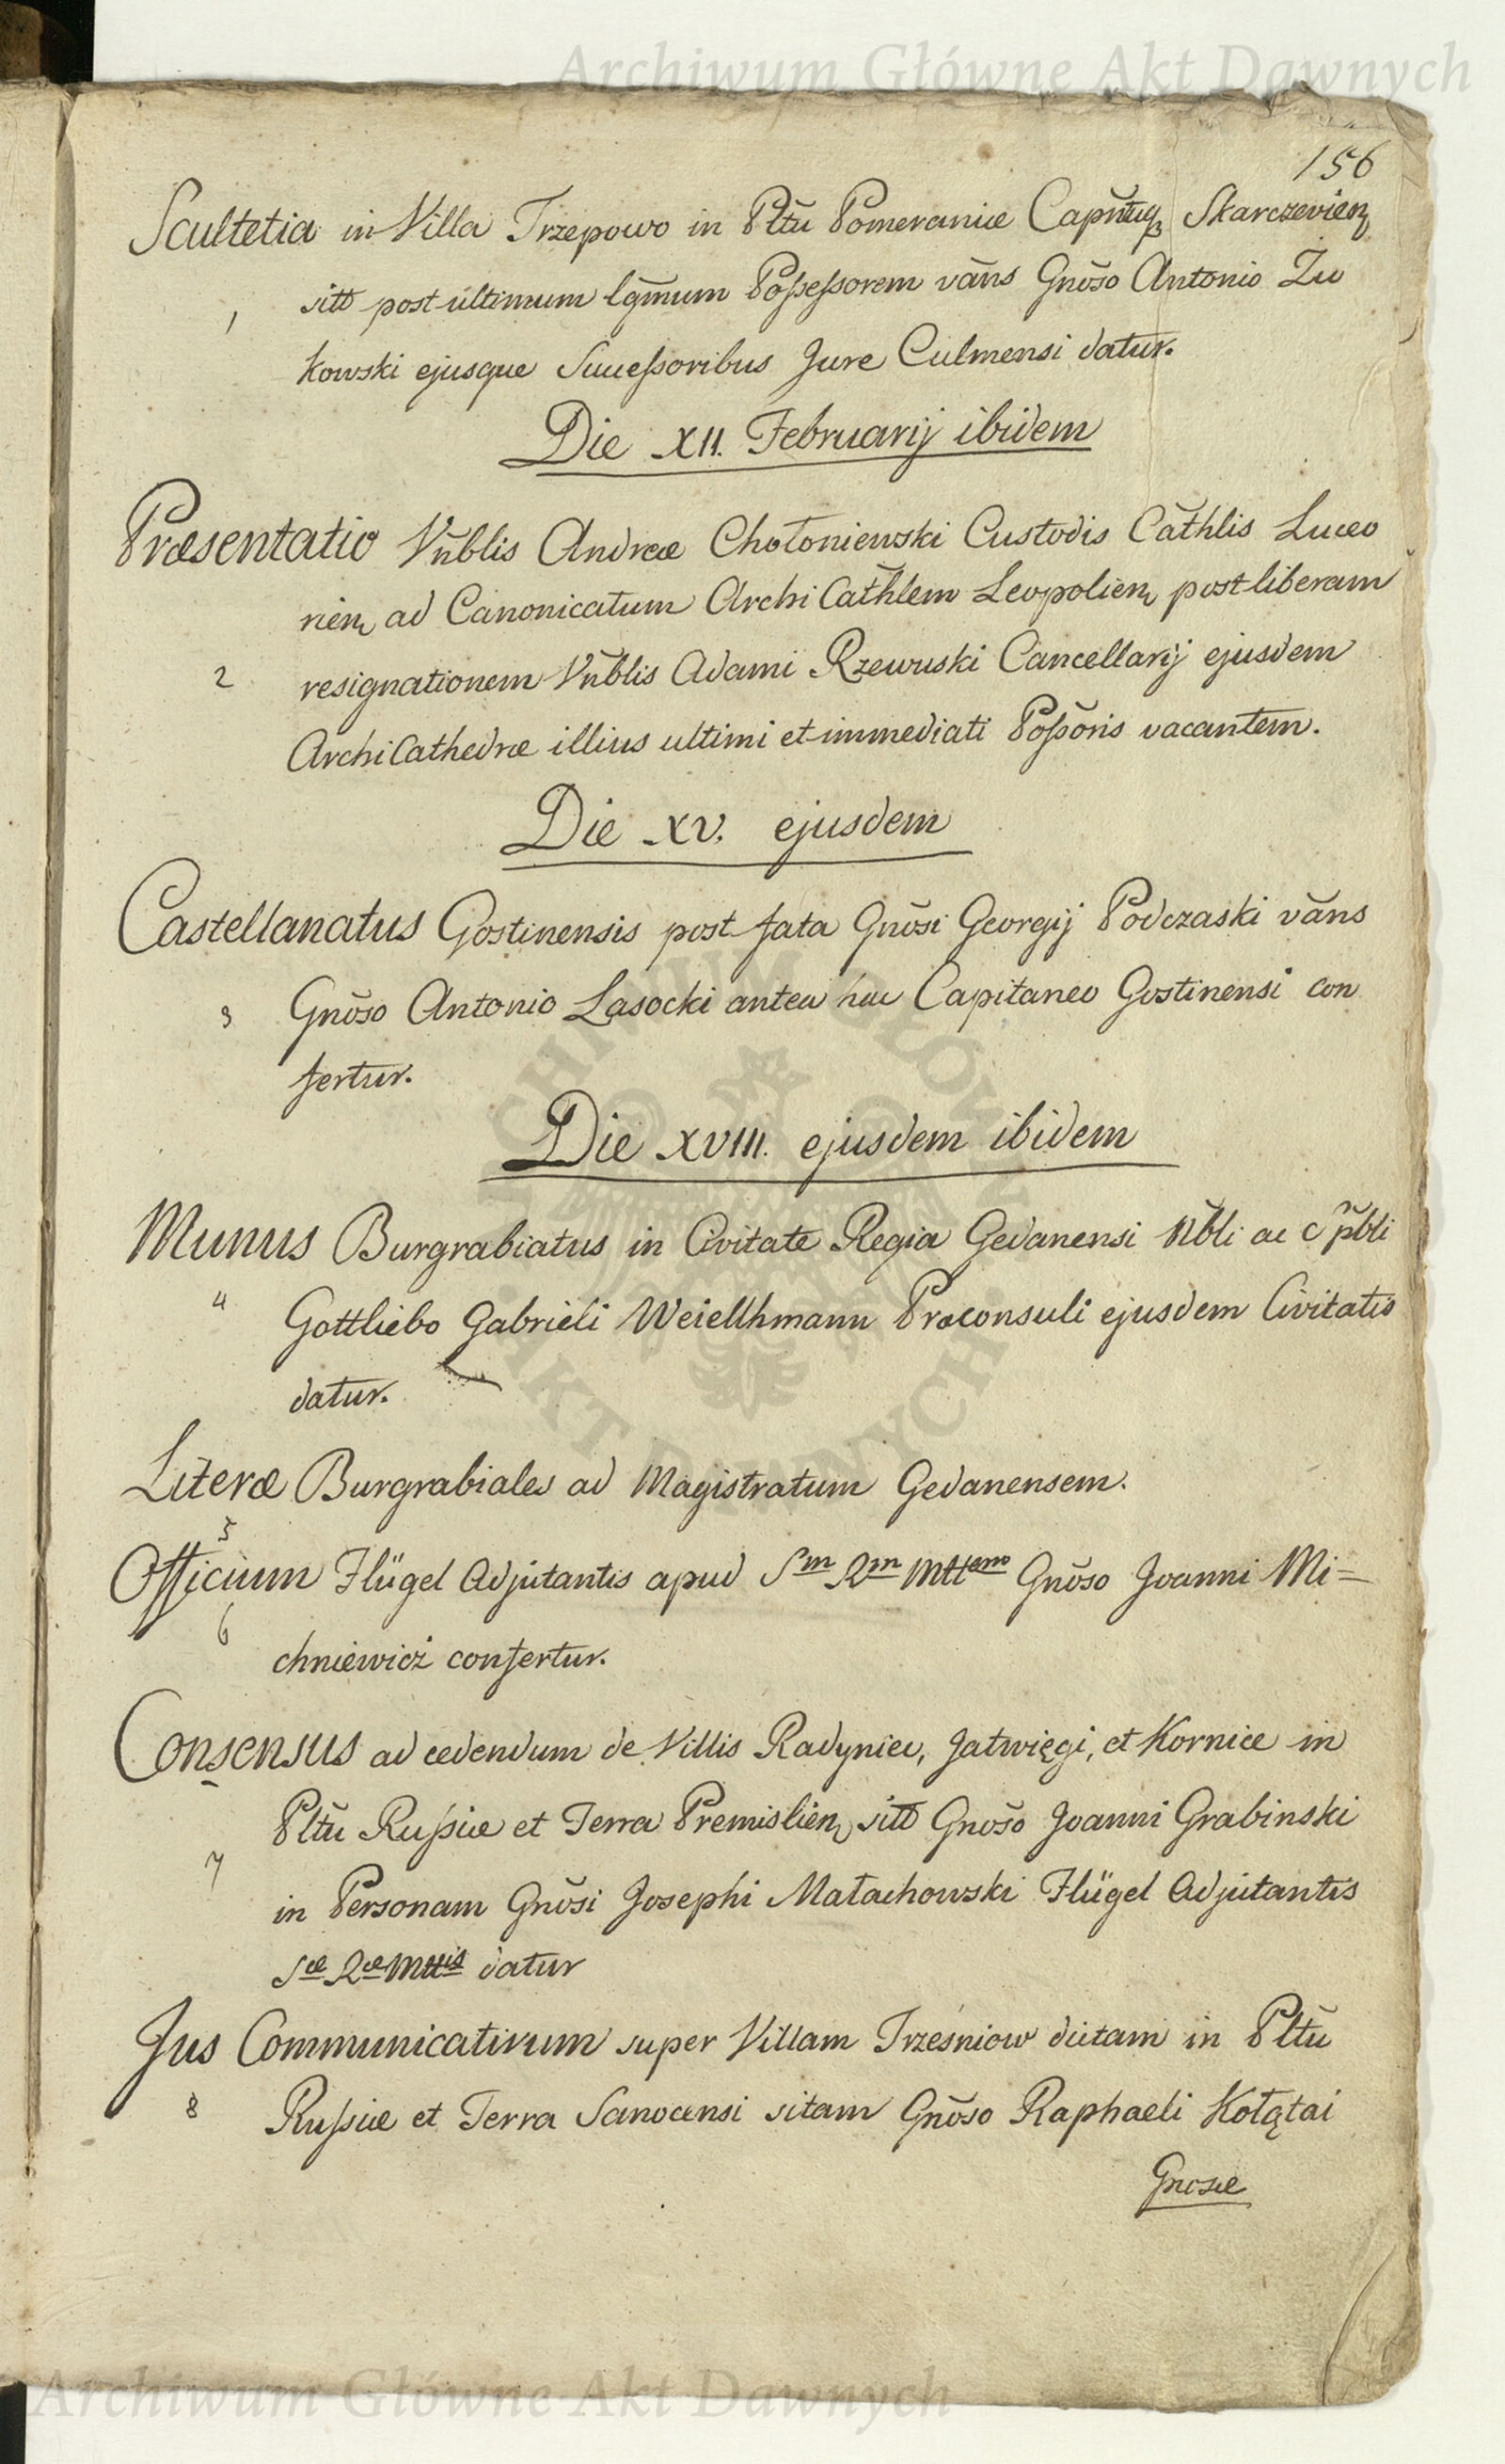 Archiwum Główne Akt Dawnych
156
Scultetia in Villa Trzepowo in Pltũ Pomeraniæ Capñtuq₃ Skarczevien
1 sitô post ultimum lgm̃um Poſseſsorem vãns Gnõso Antonio Zu
kowski ejusque Succeſsoribus Jure Culmensi datur.
Die XII. Februarij ibidem
Præsentatio Vñblis Andreæ Chołoniewski Custodis Cãthlis Luceo
rien ad Canonicatum Archi Cãthlem Leopolien post liberam
2 resignationem Vñblis Adami Rzewuski Cancellarij ejusdem
ArchiCathedræ illius ultimi et immediati Poſsoris vacantem.
Die XV. ejusdem
Castellanatus Gostinensis post fata Gnõsi Georgij Podczaski vãns
3 Gnõso Antonio Lasocki antea hac Capitaneo Gostinensi con
fertur.
Die XVIII. ejusdem ibidem
Munus Burgrabiatus in Civitate Regia Gedanensi Nbli ac c
4 Gottliebo Gabrieli Weiellhmann Præconsuli ejusdem Civitatis
datur.
Literæ Burgrabiales ad Magistratum Gedanensem.
5
Officium Flügel Adjutantis apud Sm Rm Mttem Gnõso Joanni Mi=
6
chniewicz confertur.
Consensus ad cedendum de Villis Radyniec, Jatwięgi, et Kornice in
Pltũ Ruſsiæ et Terra Premislien sitô Gnõso Joanni Grabinski
7 in Personam Gnõsi Josephi Małachowski Flügel Adjutantis
Sæ Ræ Mttis datur
Jus Communicativum super Villam Trześniow dictam in Pltũ
8 Ruſsiæ et Terra Sanocensi sitam Gnõso Raphaeli Kołątai
Gnosæ
ARCHIWUM GŁÓWNE AKT DAWNYCH
Archiwum Główne Akt Dawnych